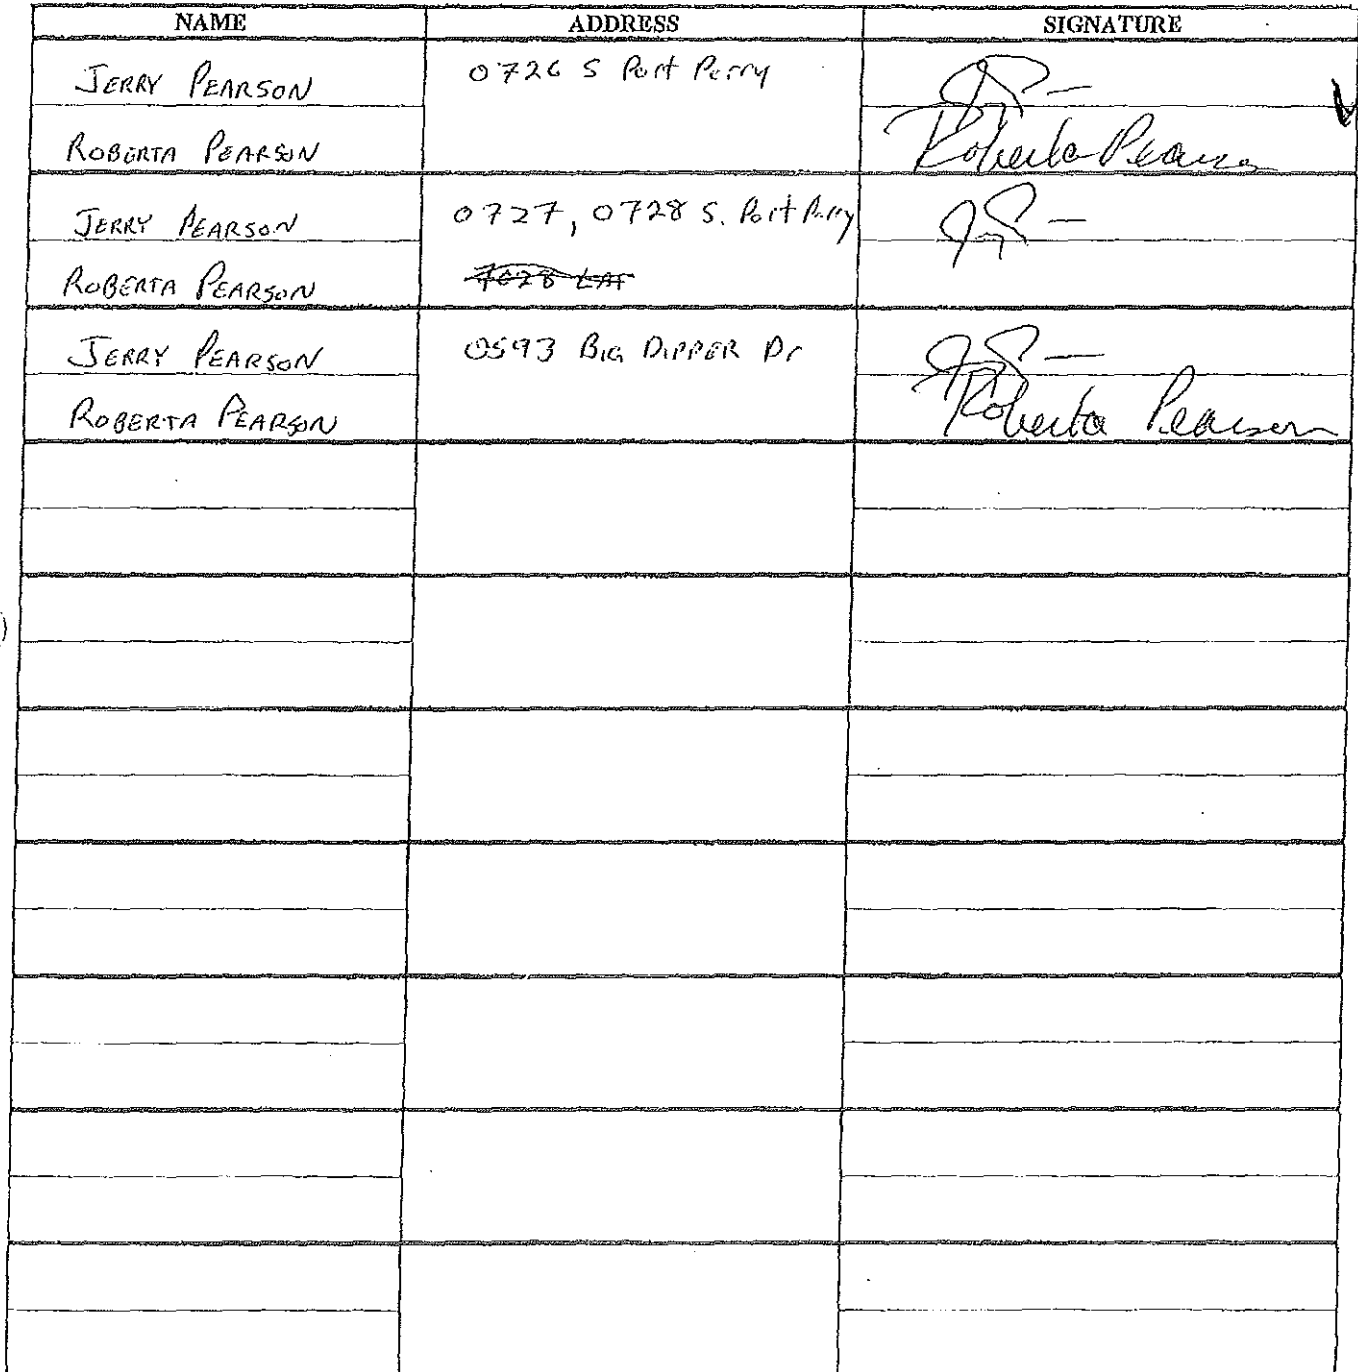 NAME ADDRESS SIGNATURE
JERRY PEARSON 0726 S Port Perry
ROBERTA PEARSON Roberta Pearson
JERRY PEARSON 0727, 0728 S. Port Perry
ROBERTA PEARSON
JERRY PEARSON 0593 BIG DIPPER Dr
ROBERTA PEARSON Roberta Pearson